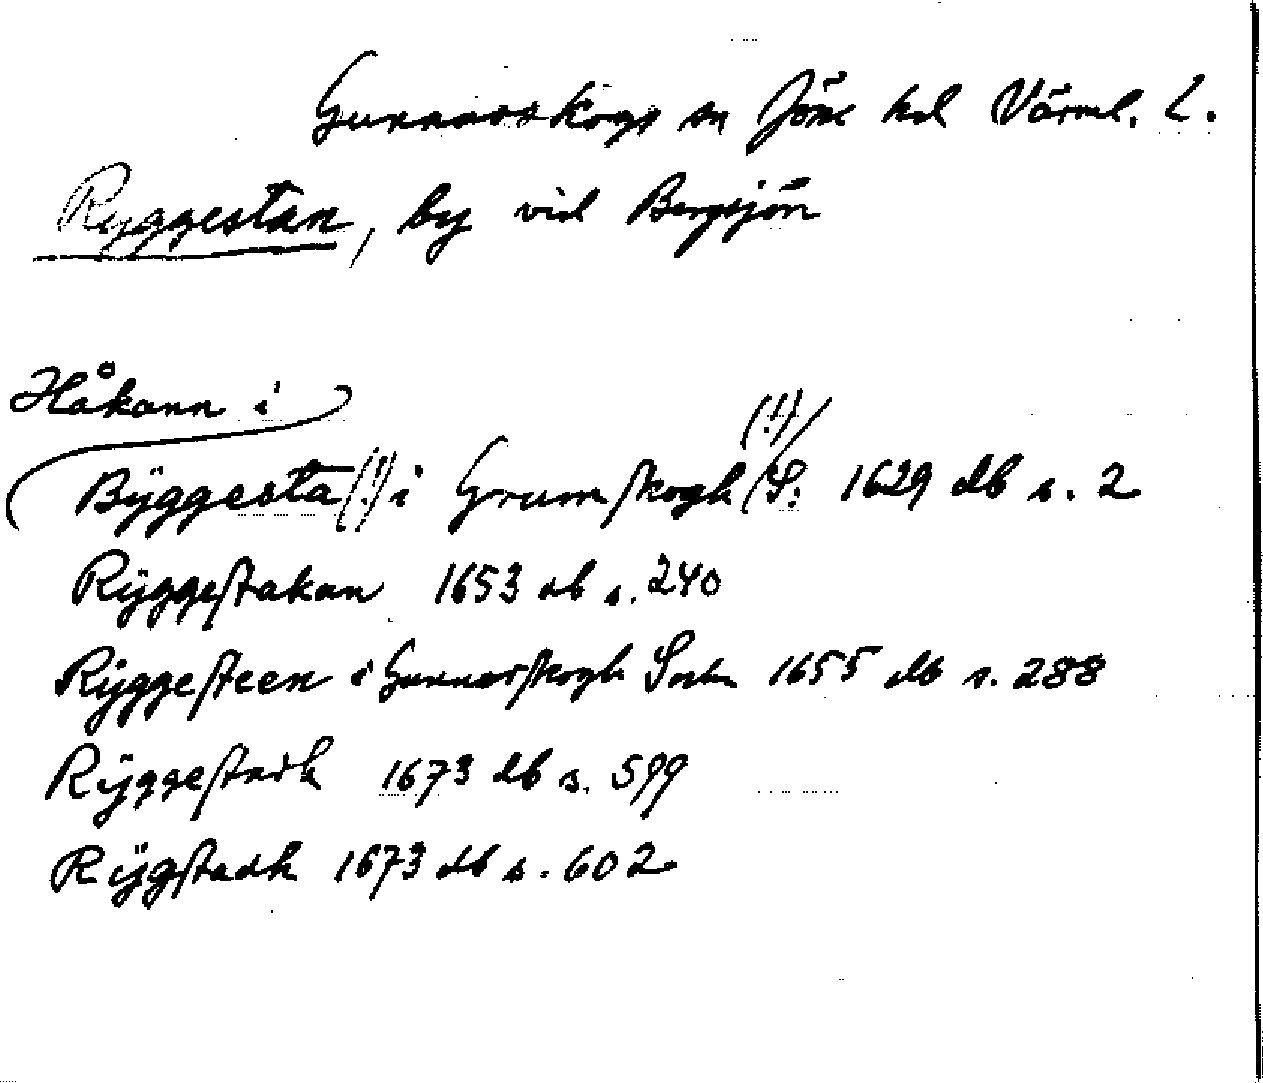 Gunnarskogs sn Jöss hd Värml. L.
Ryggestan, by vid Bergsjön
Håkann i
Bÿggesta (!) i Grumskogh (!) S. 1629 db s. 2
Rÿggestakan 1653 db s. 240
Rÿggesteen i Gunnarskogh Sochn 1655 db s. 288
Rÿggestadh 1673 db s. 599
Rÿgstadh 1673 db s. 602